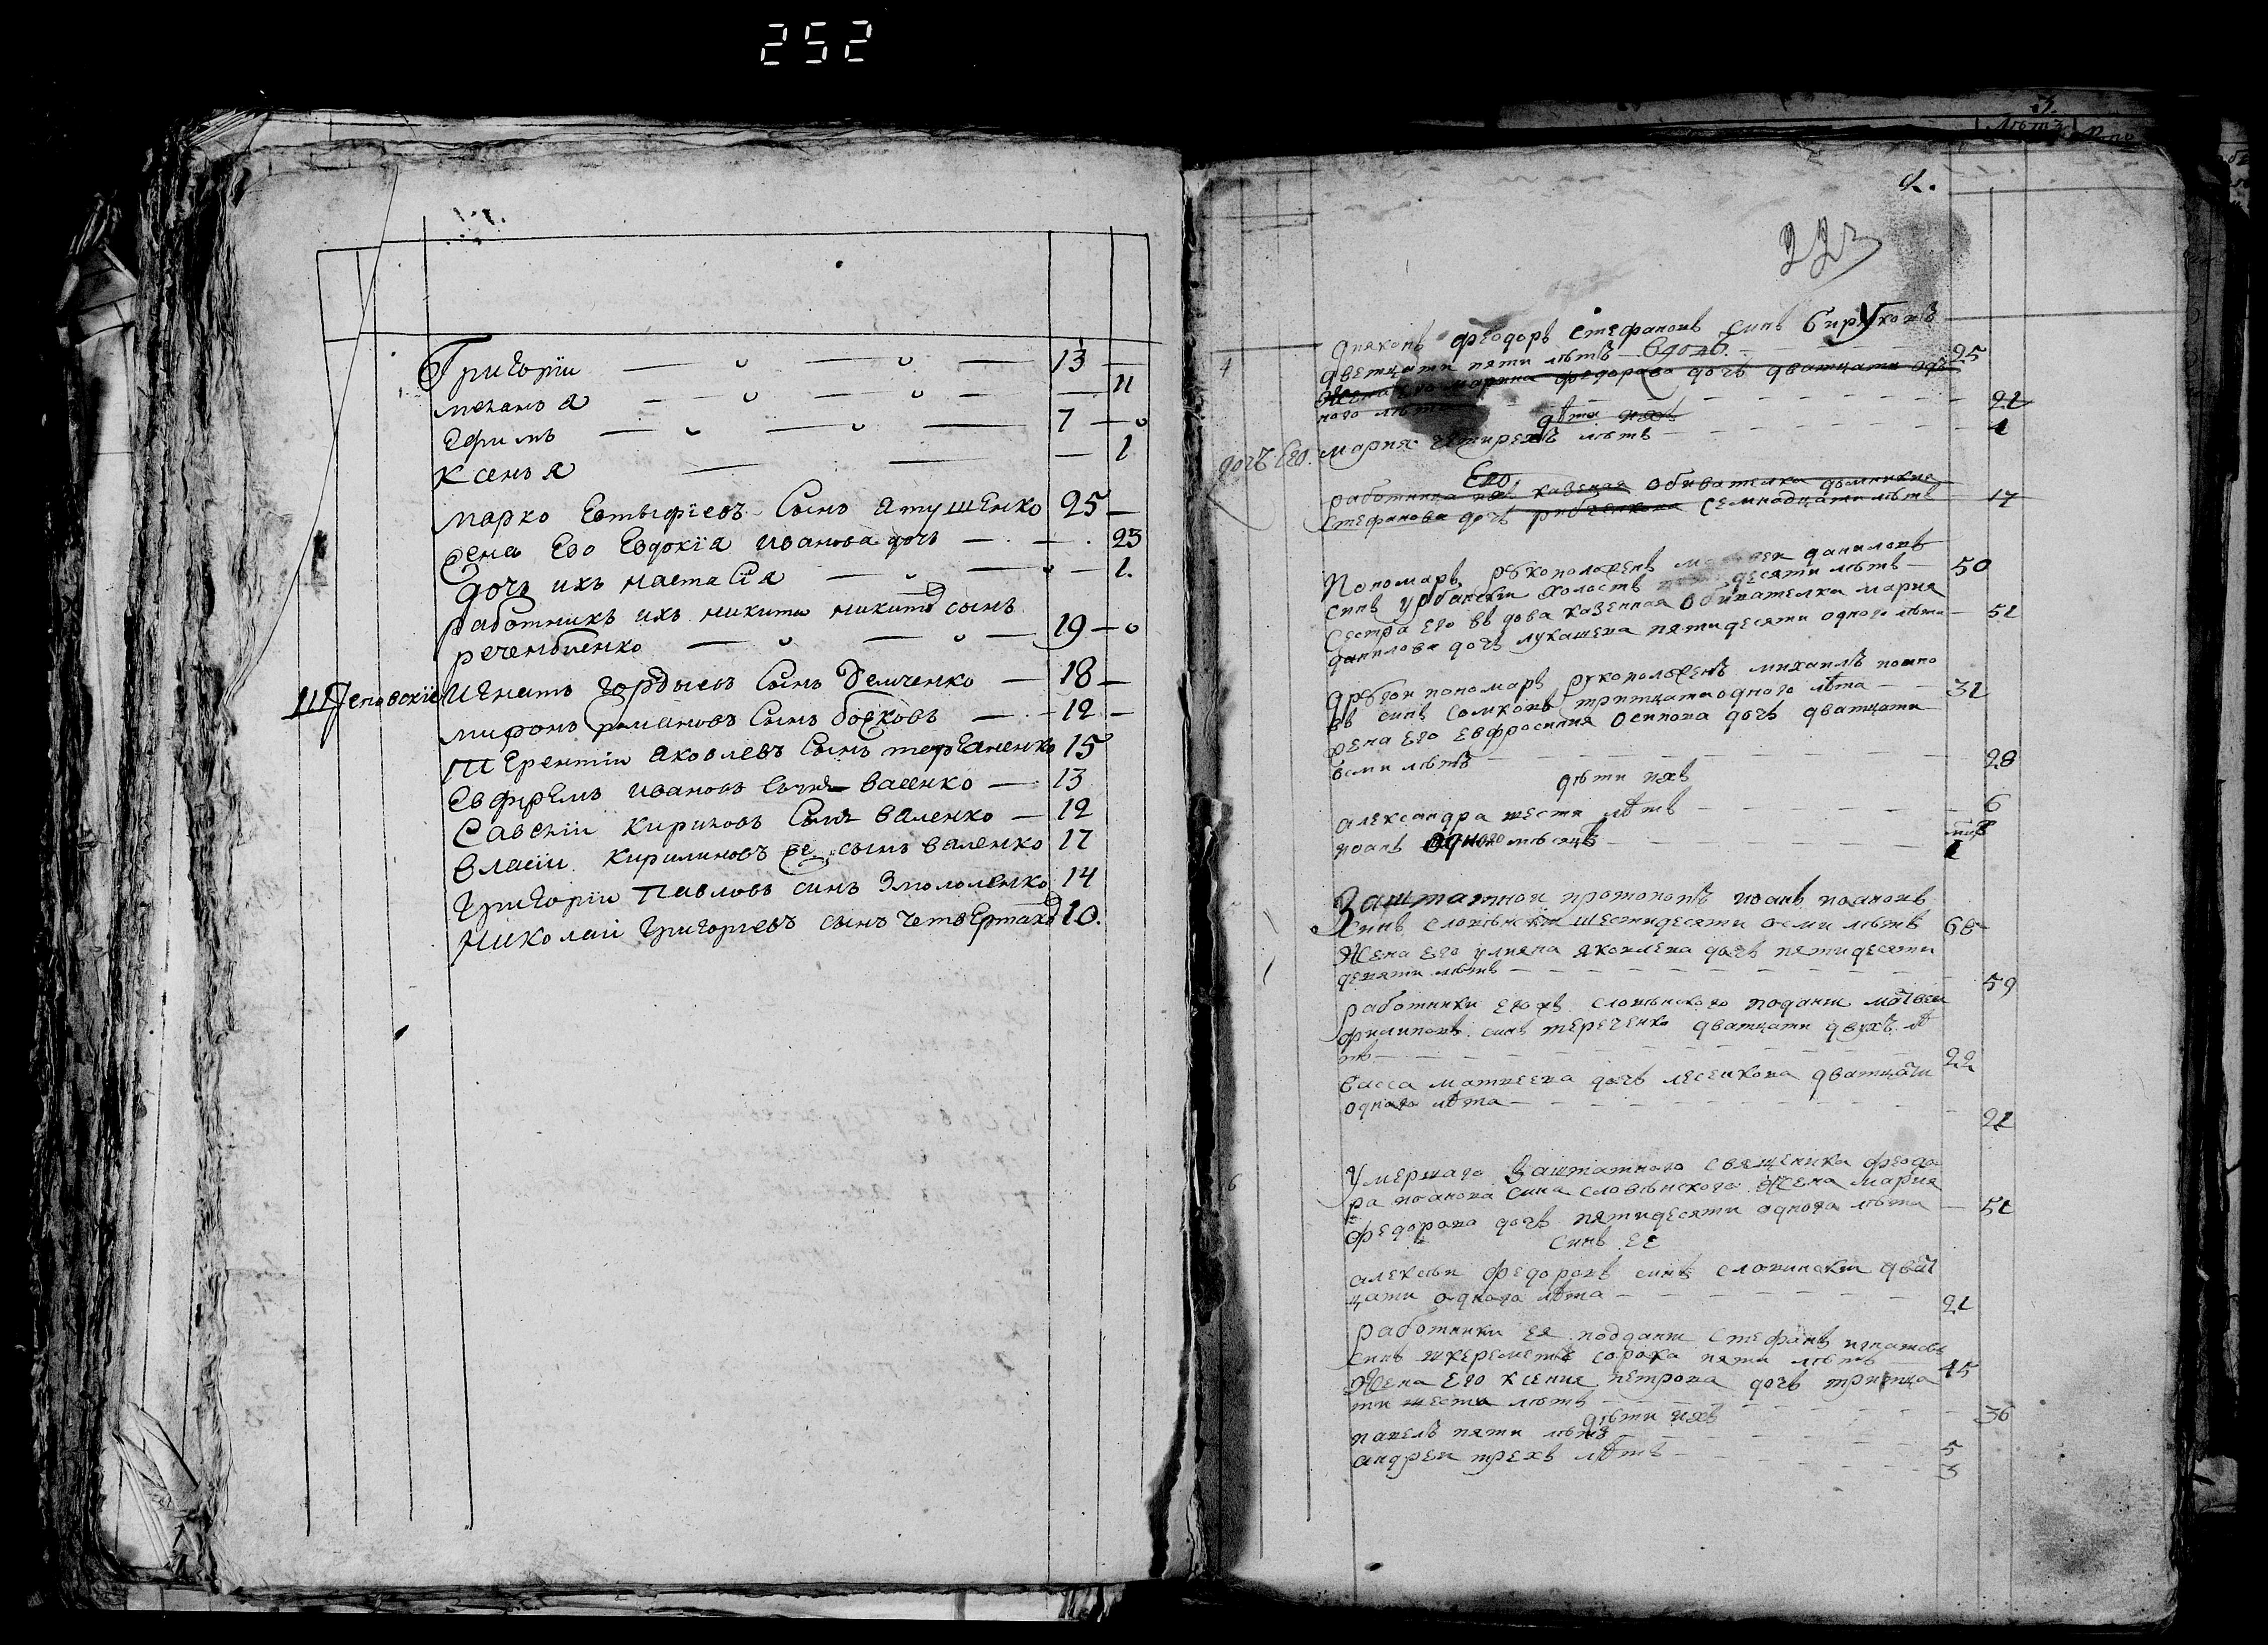 252
Григорїи 13
меланья 11
Ефимъ 7
Ксенья 1
марко Евтыфїевъ Сынъ Ятушенко 25
Жена Его Евдокїя иванова дочь 23
дочь ихъ настасїя 1.
работникъ ихъ никита никитѣ сынъ
19
Школьники Игнатъ Гордѣевъ Сынъ Демченко 18
миронъ романовъ Сынъ 12
Терентїи яковлевъ Сынъ 15
Евфремъ ивановъ Сынъ Валенко 13
Савелїи Кириловъ Сынъ Валенко 12
власїи Кириловъ сынъ валенко 17
Григорїи Павловъ синъ 14
Николаи Григорьевъ сынъ Четверт 10.
223
4
Дияконъ феодоръ Стефановъ Синъ Бируковъ
дветцати пяти лѣтъ вдовъ 25
Жена Его марина федорова дочъ дватцати од
ного лѣта 21
дѣти ихъ
дочъ Его мария четирехъ лѣтъ 4
Его
работница ихъ казеная обивателка домникия
Стефанова дочъ семнадцати лѣтъ 17
Пономаръ рукоположенъ даниловъ
синъ Урбански холостъ десяти лѣтъ 50
Сестра Его вдова казенная обивателка мария
данилова дочъ лукашева пятидесяти одного лѣта 51
другои пономаръ рукоположенъ михаилъ
въ синъ Сомковъ тритцати одного лѣта 31
жена Его Евфросиния Осипова дочъ дватцати
осми лѣтъ 28
дѣти ихъ
александра шести лѣтъ 6
иоанъ одного мѣсяца 1
Заштатнои протопопъ иоанъ иоановъ
Синъ Словѣнски шестидесяти осми лѣтъ 68
Жена Его улияна яковлева дочъ пятидесяти
девяти лѣтъ 59
работники Его словѣнского подание матвеи
филиповъ синъ тереченко дватцати двухъ лѣ
тъ 22
васса матвеева дочъ лесенкова дватцати
одного лѣта 21
6
Умершаго Заштатного священика феодо
ра иоанова сина словѣнского Жена мария
федорова дочъ пятидесяти одного лѣта 51
синъ ЕЕ
алексѣи федоровъ синъ словински дват
цати одного лѣта 21
работники Ея поддание Стефанъ игнатовъ
синъ сорока пяти лѣтъ 45
Жена Его ксения петрова дочъ тритца
ти шести лѣтъ 36
дѣти ихъ
павелъ пяти лѣтъ 5
андреи трехъ лѣтъ 3